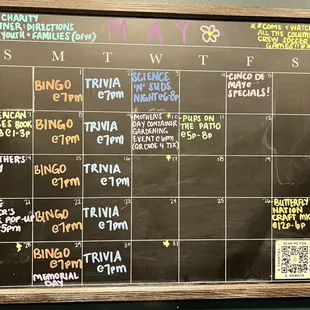 CHARITY
NER: DIRECTIONS
YOUTH + FAMILIES (DFYF)
MAY
COME + WATCH
ALL THE COLUM
CREW SOCCER
GAMES
S M T W T F S
BINGO
@7PM
TRIVIA
@7PM
SCIENCE
'N' SUDS
NIGHT @6-8P
CINCO DE
MAYO
SPECIALS!
ERICAN
ES BOOK
@1-3P
BINGO
@7PM
TRIVIA
@7PM
MOTHER'S
DAY CONTAINER
GARDENING
EVENT @6PM
(QR CODE 4 TIX)
PUPS ON
THE PATIO
@5P-8P
THER'S
BINGO
@7PM
TRIVIA
@7PM
R'S
POP-UP
5PM
BINGO
@7PM
TRIVIA
@7PM
BUTTERFLY
NATION
CRAFT MKT
@12P-6P
BINGO
@7PM
MEMORIAL
DAY
TRIVIA
@7PM
SCAN ME FOR